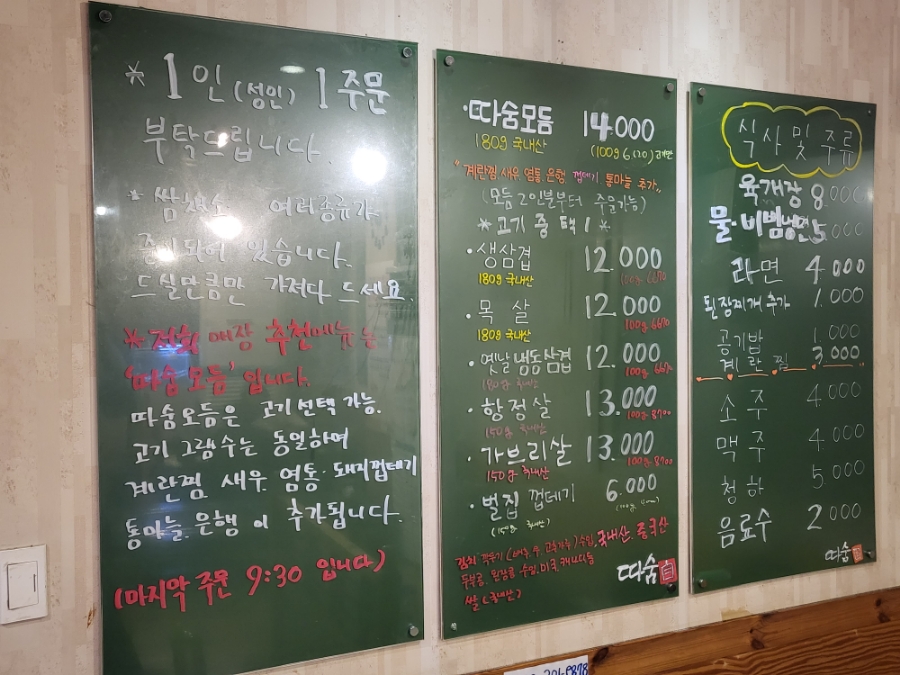 * 1인 (성인) 1주문
부탁드립니다.
* 쌈 채소 여러종류가
준비되어 있습니다.
드실만큼만 가져다 드세요.
* 저희 매장 추천메뉴는
'따숨모듬' 입니다.
따숨모듬은 고기선택 가능.
고기 그램수는 동일하며
계란찜 새우 염통·돼지껍데기
통마늘. 은행 이 추가됩니다.
(마지막 주문 9:30 입니다)
·따숨모듬 14.000
180g 국내산
"계란찜. 새우. 염통. 은행. 껍데기. 통마늘 추가"
(모듬 2인분부터 주문가능)
* 고기 중 택 1 *
·생삼겹 12.000
180g 국내산 100g 6670
·목살 12.000
180g 국내산 100g 6670
·옛날냉동삼겹 12.000
180g 국내산
·항정살 13.000
150g 국내산 100g 8700
·가브리살 13.000
150g 국내산 100g 8700
·벌집 껍데기 6.000
(150g 국내산)
국내산. 중국산
쌀(국내산)
따숨
식사 및 주류
육개장 8000
물·비빔냉면 5000
라면 4000
된장찌개 추가 1.000
공기밥 1.000
계란찜 3.000
소주 4000
맥주 4.000
청하 5000
음료수 2000
따숨